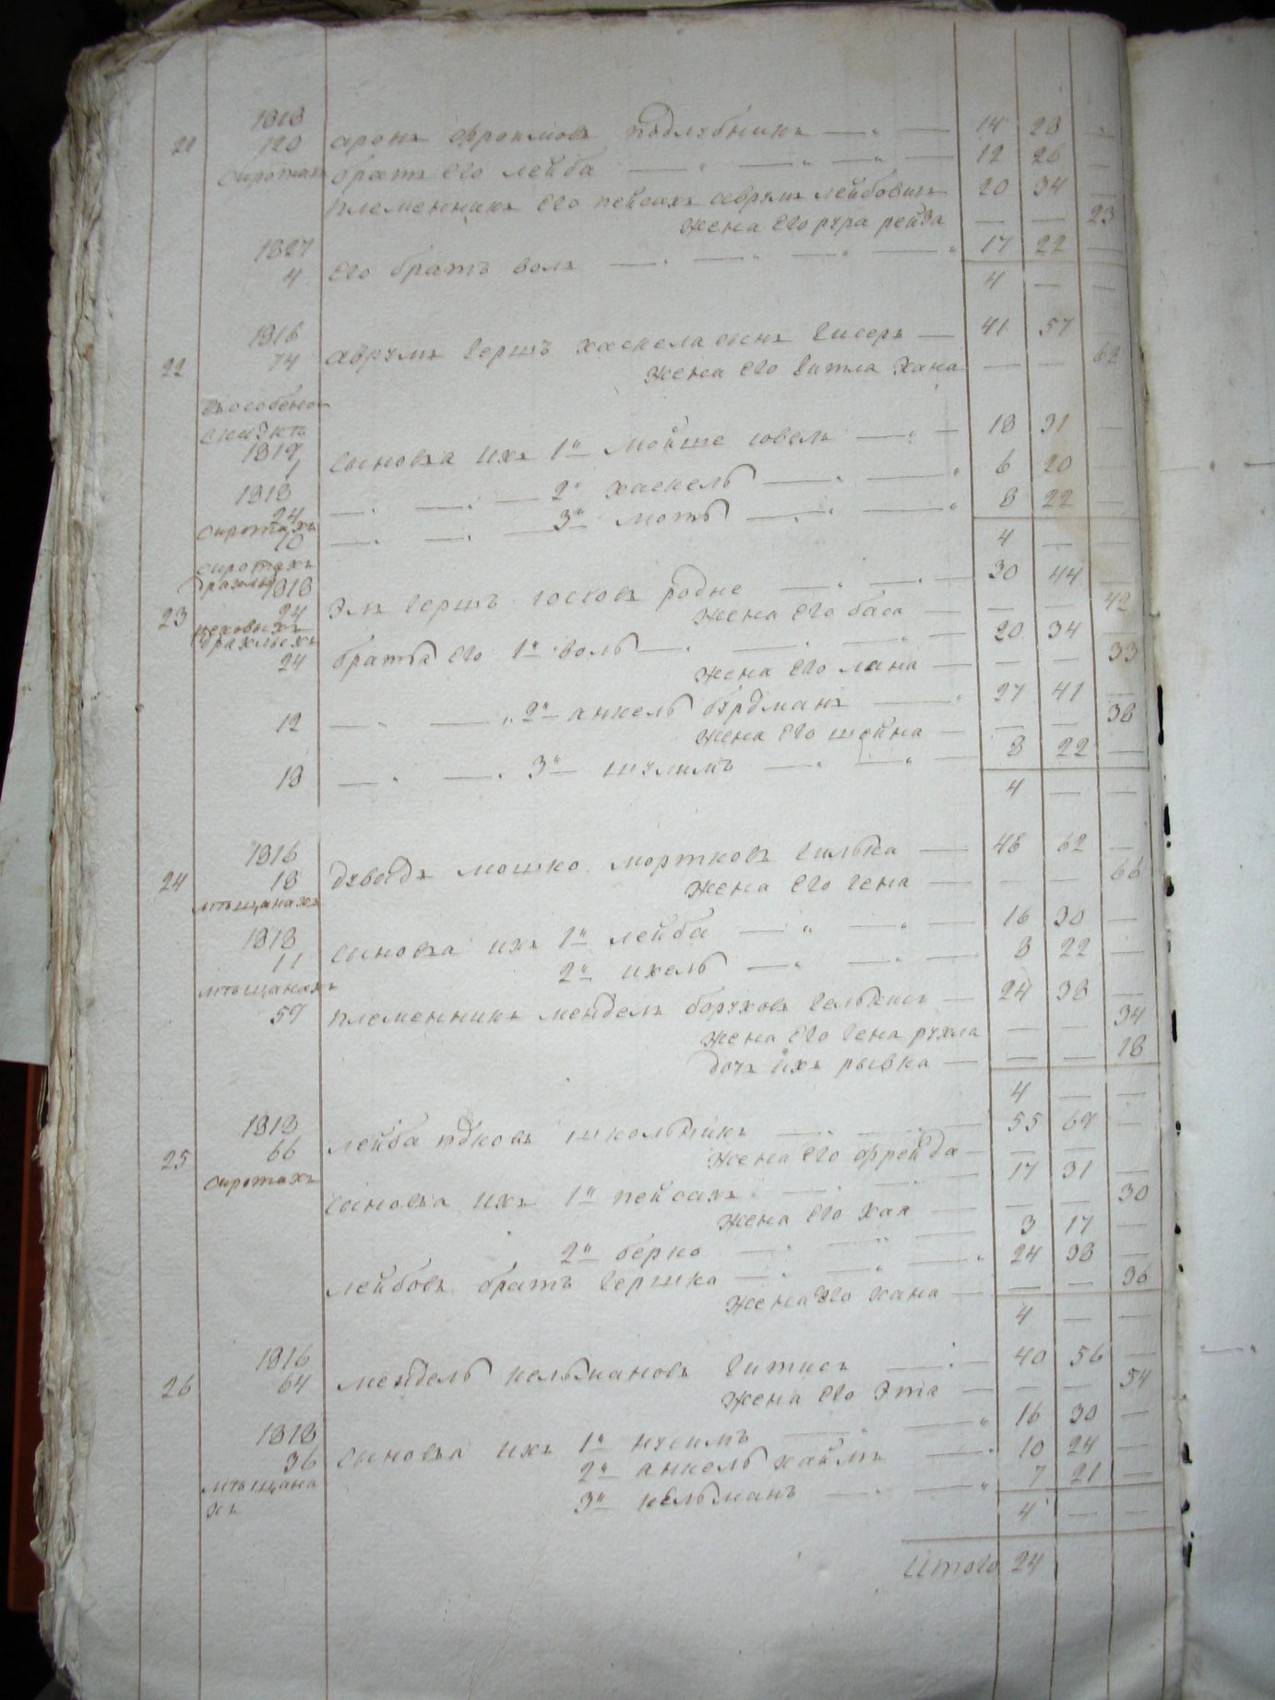 1818
21 120 аронъ фроимовъ подлубникъ — 14 28 —
сиротахъ братъ его лейба — 12 26 —
племенникъ его пейсахъ аврумъ лейбовичъ 20 34 —
жена его рейза — — 23
1827
4 его братъ волъ — 17 22 —
4 — —
1816
22 74 аврумъ гершъ хаскела сынъ — 41 57 —
жена его гитла хана — — 62
въ особено
1819
1 сыновья ихъ 1й мойше — 18 31 —
1818
24 — 2й хаскель — 6 20 —
сиротахъ
10 — 3й — 8 22 —
4 — —
сиротахъ
1818
23 24 гершъ родне — 30 44 —
жена его бася — — 42
24 братья его 1й воль — 20 34 —
жена его — — 33
12 — 2й анкель бурдманъ — 27 41 —
жена его шейна — — 38
18 — 3й шулимъ — 8 22 —
4 — —
1816
24 18 дувидъ мошко мортковъ гилька — 48 62 —
мѣщанахъ жена его гена — — 66
1818
11 сыновья ихъ 1й лейба — 16 30 —
2й ихель — 8 22 —
мѣщанахъ
59 племенникъ мендель боруховъ — 24 38 —
жена его гена рухля — — 34
дочь ихъ рывка — — 18
4 — —
1818
25 66 лейба школьникъ — 55 69 —
сиротахъ жена его фрейда — —
сыновья ихъ 1й пейсахъ — 17 31 —
жена его хая — — 30
2й берко — 3 17 —
лейбовъ братъ гершко — 24 38 —
жена его хана — — 36
4 — —
1816
26 64 мендель кельмановъ — 40 56 —
жена его эта — — 54
1818
36 сыновья ихъ 1й нусимъ — 16 30 —
мѣщана 2й анкель хаймъ — 10 24 —
хъ 3й кельманъ — 7 21 —
4 — —
Итого 24